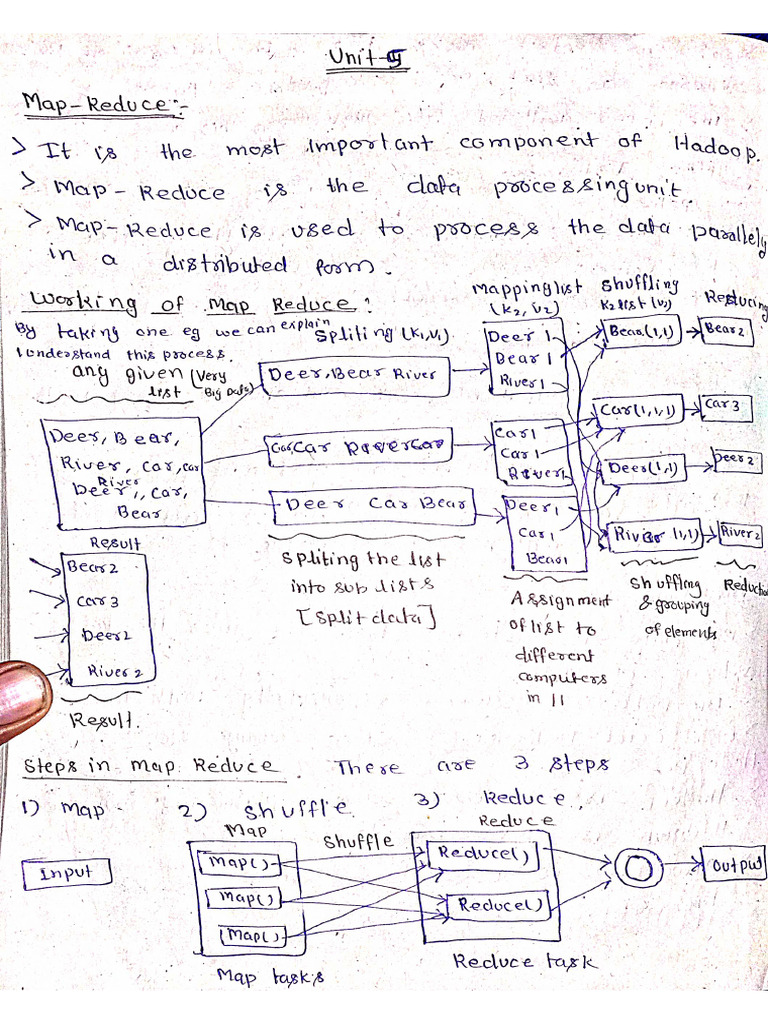 Unit-5
Map-Reduce:-
> It is the most important component of Hadoop.
> Map-Reduce is the data processing unit.
> Map-Reduce is used to process the data parallely
in a distributed form.
Working of Map Reduce:
By taking one eg we can explain
/understand this process.
any given (Very
list Big Data)
Spliting (K1,V1)
Mapping list
(K2, V2)
Shuffling
K2 list (V2)
Reducing
Deer, Bear,
River, Car, Car
River
Deer, Car,
Bear
Deer, Bear River
Car Car River Car
Deer Car Bear
Deer 1
Bear 1
River 1
Car 1
Car 1
River 1
Deer 1
Car 1
Bear 1
Bear (1,1)
Car (1,1,1)
Deer (1,1)
River (1,1)
Bear 2
Car 3
Deer 2
River 2
Spliting the list
into sub lists
[split data]
Assignment
of list to
different
computers
in ||
Shuffling
& grouping
of elements
Reduction
Result
Bear 2
Car 3
Deer 2
River 2
Result.
Steps in Map Reduce. There are 3 steps
1) Map 2) Shuffle 3) Reduce
Map
Shuffle
Reduce
Input
Map()
Map()
Map()
Reduce()
Reduce()
Output
Map tasks
Reduce task